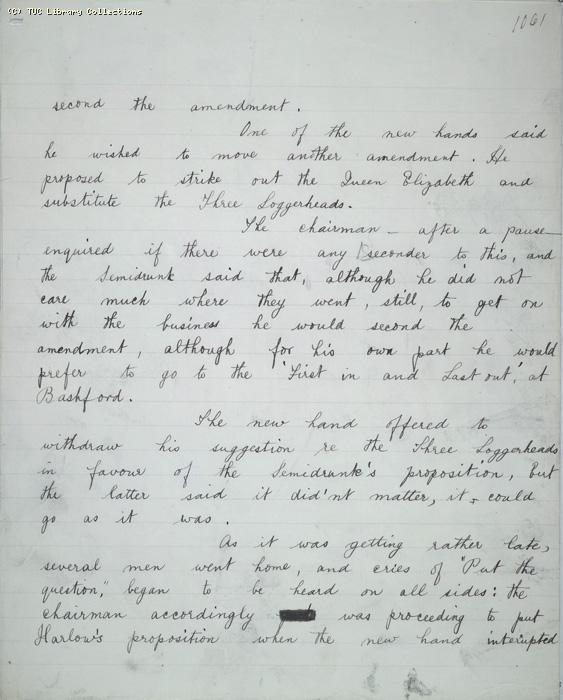 (C) TUC Library Collections
1061
second the amendment.
One of the new hands said
he wished to move another amendment. He
proposed to strike out the Queen Elizabeth and
substitute the Three Loggerheads.
The chairman — after a pause —
enquired if there were any seconder to this, and
the Semidrunk said that, although he did not
care much where they went, still, to get on
with the business he would second the
amendment, although for his own part he would
prefer to go to the 'First in and Last out,' at
Bashford.
The new hand offered to
withdraw his suggestion re the Three Loggerheads
in favour of the Semidrunk's proposition, but
the latter said it did'nt matter, it could
go as it was.
As it was getting rather late,
several men went home, and cries of "Put the
question," began to be heard on all sides: the
chairman accordingly was proceeding to put
Harlow's proposition when the new hand interupted